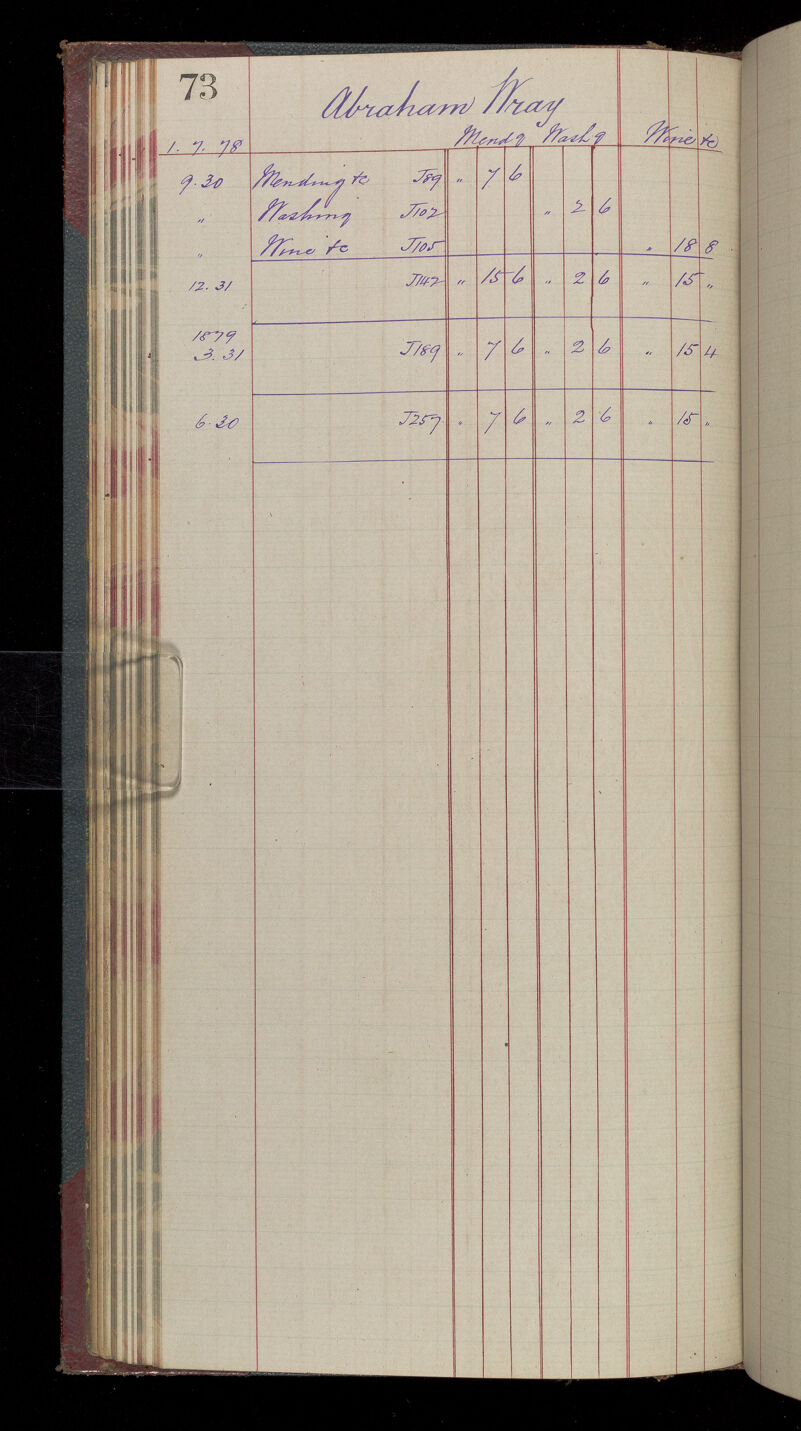 73
Abraham Wray
1. 7. 78 Mendg Washg Wine &c
9.30 Mending &c J89 " 7 6
" Washing J102 " 2 6
" Wine &c J105 " 18 8
12.31 J142 " 15 6 " 2 6 " 15 "
1879
3.31 J189 " 7 6 " 2 6 " 15 4
6.30 J257 " 7 6 " 2 6 " 15 "